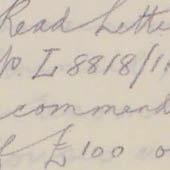 Read Lette
p. L 8818/1
commend
f £100 o